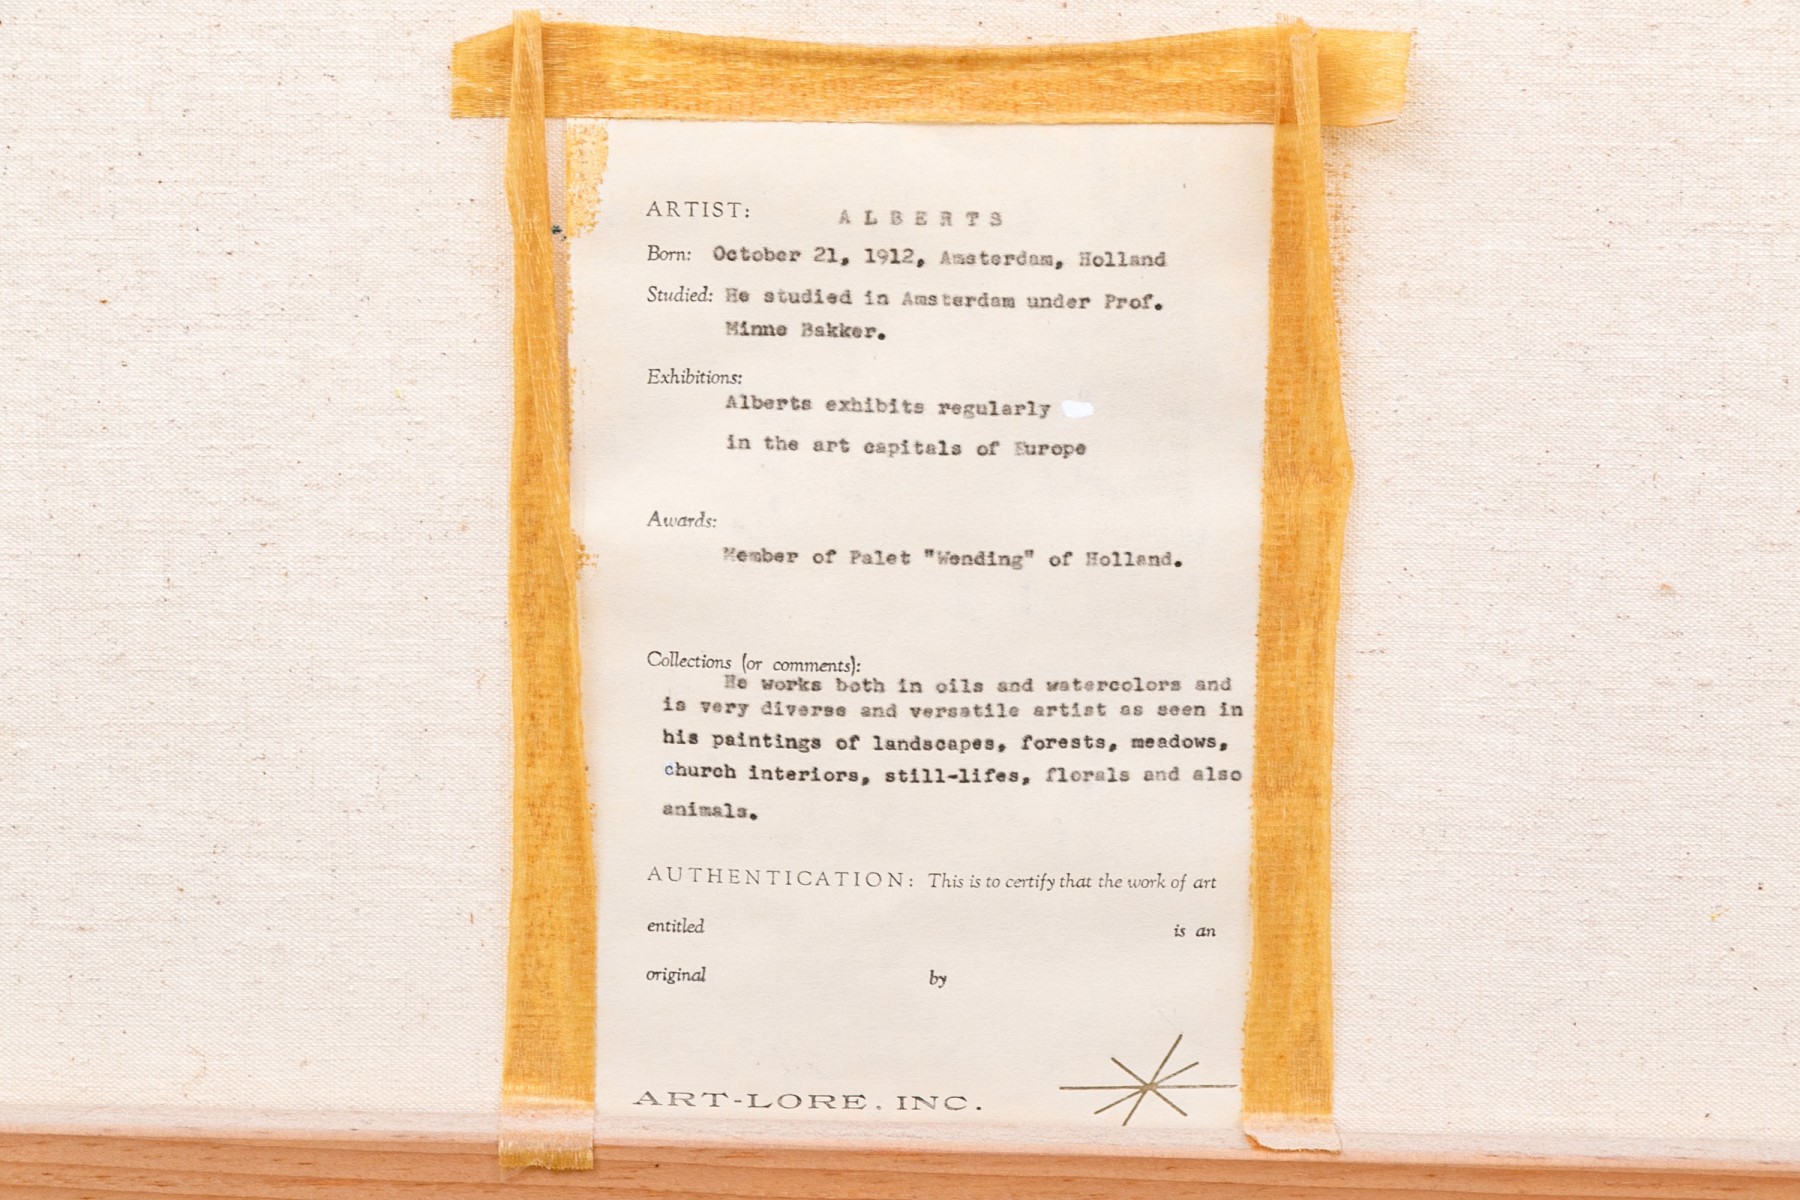 ARTIST: ALBERTS
Born: October 21, 1912, Amsterdam, Holland
Studied: He studied in Amsterdam under Prof.
Minne Bakker.
Exhibitions:
Alberts exhibits regularly
in the art capitals of Europe
Awards:
Member of Palet "Wending" of Holland.
Collections (or comments):
He works both in oils and watercolors and
is very diverse and versatile artist as seen in
his paintings of landscapes, forests, meadows,
church interiors, still-lifes, florals and also
animals.
AUTHENTICATION: This is to certify that the work of art
entitled is an
original by
ART-LORE, INC.